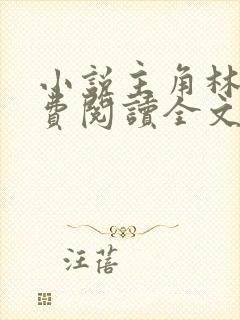 小說主角林
費閱讀全文
汪蓓